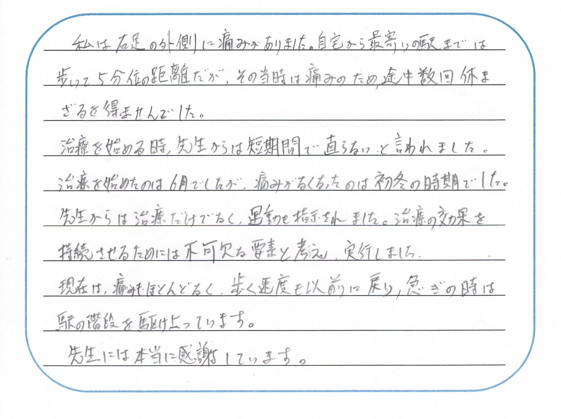 私は右足の外側に痛みがありました。自宅から最寄りの駅までは
歩いて5分位の距離だが、その当時は痛みのため、途中数回休ま
ざるを得ませんでした。
治療を始める時、先生からは短期間で直らないと言われました。
治療を始めたのは6月でしたが、痛みがなくなったのは初冬の時期でした。
先生からは治療だけでなく、運動も指示されました。治療の効果を
持続させるためには不可欠な要素と考え、実行しました。
現在は、痛みもほとんどなく、歩く速度も以前に戻り、急ぎの時は
駅の階段を駆け上っています。
先生には本当に感謝しています。